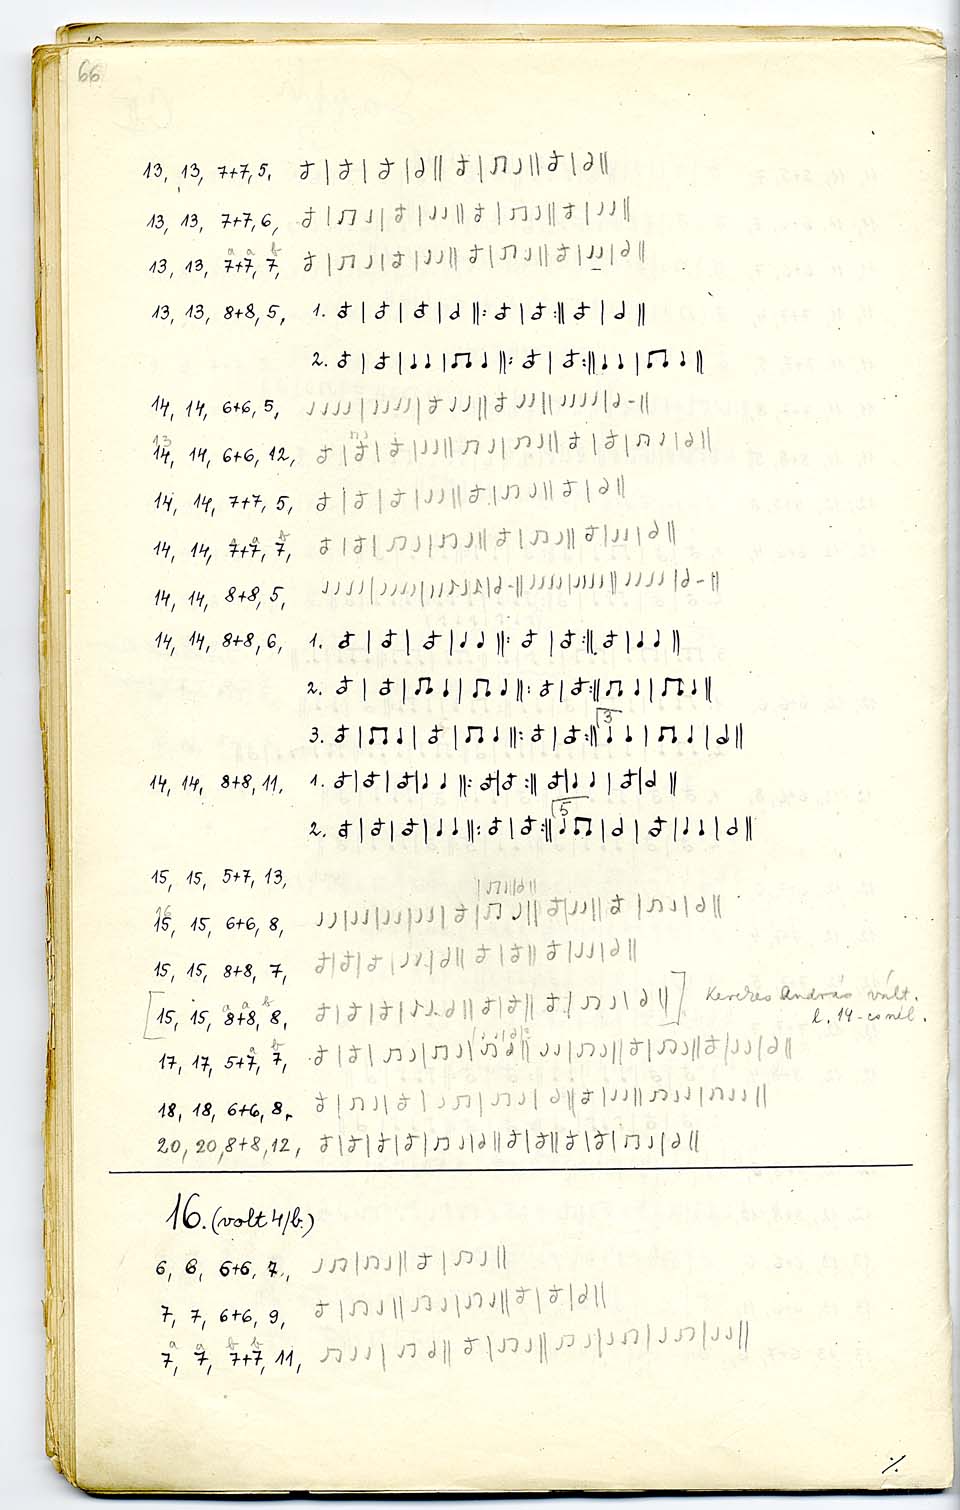 66
13, 13, 7+7, 5,
13, 13, 7+7, 6,
a a b
13, 13, 7+7, 7,
13, 13, 8+8, 5, 1.
2.
14, 14, 6+6, 5,
13
14, 14, 6+6, 12,
14, 14, 7+7, 5,
a a b
14, 14, 7+7, 7,
14, 14, 8+8, 5,
14, 14, 8+8, 6, 1.
2.
3
3.
14, 14, 8+8, 11, 1.
5
2.
15, 15, 5+7, 13,
16
15, 15, 6+6, 8,
15, 15, 8+8, 7,
a a b
[15, 15, 8+8, 8, ] Kerekes András vált.
l. 14-esnél.
a b
17, 17, 5+7, 7,
18, 18, 6+6, 8,
20, 20, 8+8, 12,
16. (volt 4/b.)
6, 6, 6+6, 7,
7, 7, 6+6, 9,
a a b b
7, 7, 7+7, 11,
%